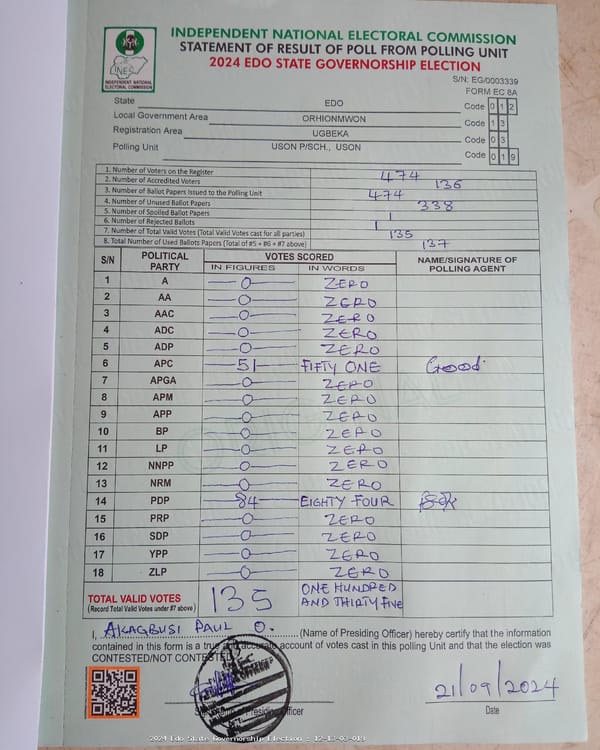 INDEPENDENT NATIONAL ELECTORAL COMMISSION
STATEMENT OF RESULT OF POLL FROM POLLING UNIT
2024 EDO STATE GOVERNORSHIP ELECTION
INEC
INDEPENDENT NATIONAL ELECTORAL COMMISSION
S/N: EG/0003339
FORM EC 8A
State EDO Code 0 1 2
Local Government Area ORHIONMWON Code 1 3
Registration Area UGBEKA Code 0 3
Polling Unit USON P/SCH., USON Code 0 1 9
1. Number of Voters on the Register 474
2. Number of Accredited Voters 136
3. Number of Ballot Papers Issued to the Polling Unit 474
4. Number of Unused Ballot Papers 338
5. Number of Spoiled Ballot Papers 1
6. Number of Rejected Ballots 1
7. Number of Total Valid Votes (Total Valid Votes cast for all parties) 135
8. Total Number of Used Ballots Papers (Total of #5 + #6 + #7 above) 137
S/N POLITICAL PARTY VOTES SCORED NAME/SIGNATURE OF POLLING AGENT
IN FIGURES IN WORDS
1 A 0 ZERO
2 AA 0 ZERO
3 AAC 0 ZERO
4 ADC 0 ZERO
5 ADP 0 ZERO
6 APC 51 FIFTY ONE Good
7 APGA 0 ZERO
8 APM 0 ZERO
9 APP 0 ZERO
10 BP 0 ZERO
11 LP 0 ZERO
12 NNPP 0 ZERO
13 NRM 0 ZERO
14 PDP 84 EIGHTY FOUR
15 PRP 0 ZERO
16 SDP 0 ZERO
17 YPP 0 ZERO
18 ZLP 0 ZERO
TOTAL VALID VOTES (Record Total Valid Votes under #7 above) 135 ONE HUNDRED AND THIRTY FIVE
I, AKAGBUSI PAUL O. (Name of Presiding Officer) hereby certify that the information
contained in this form is a true and accurate account of votes cast in this polling Unit and that the election was
CONTESTED/NOT CONTESTED
21/09/2024
Officer
Date
2024 Edo State Governorship Election - 12-13-03-019